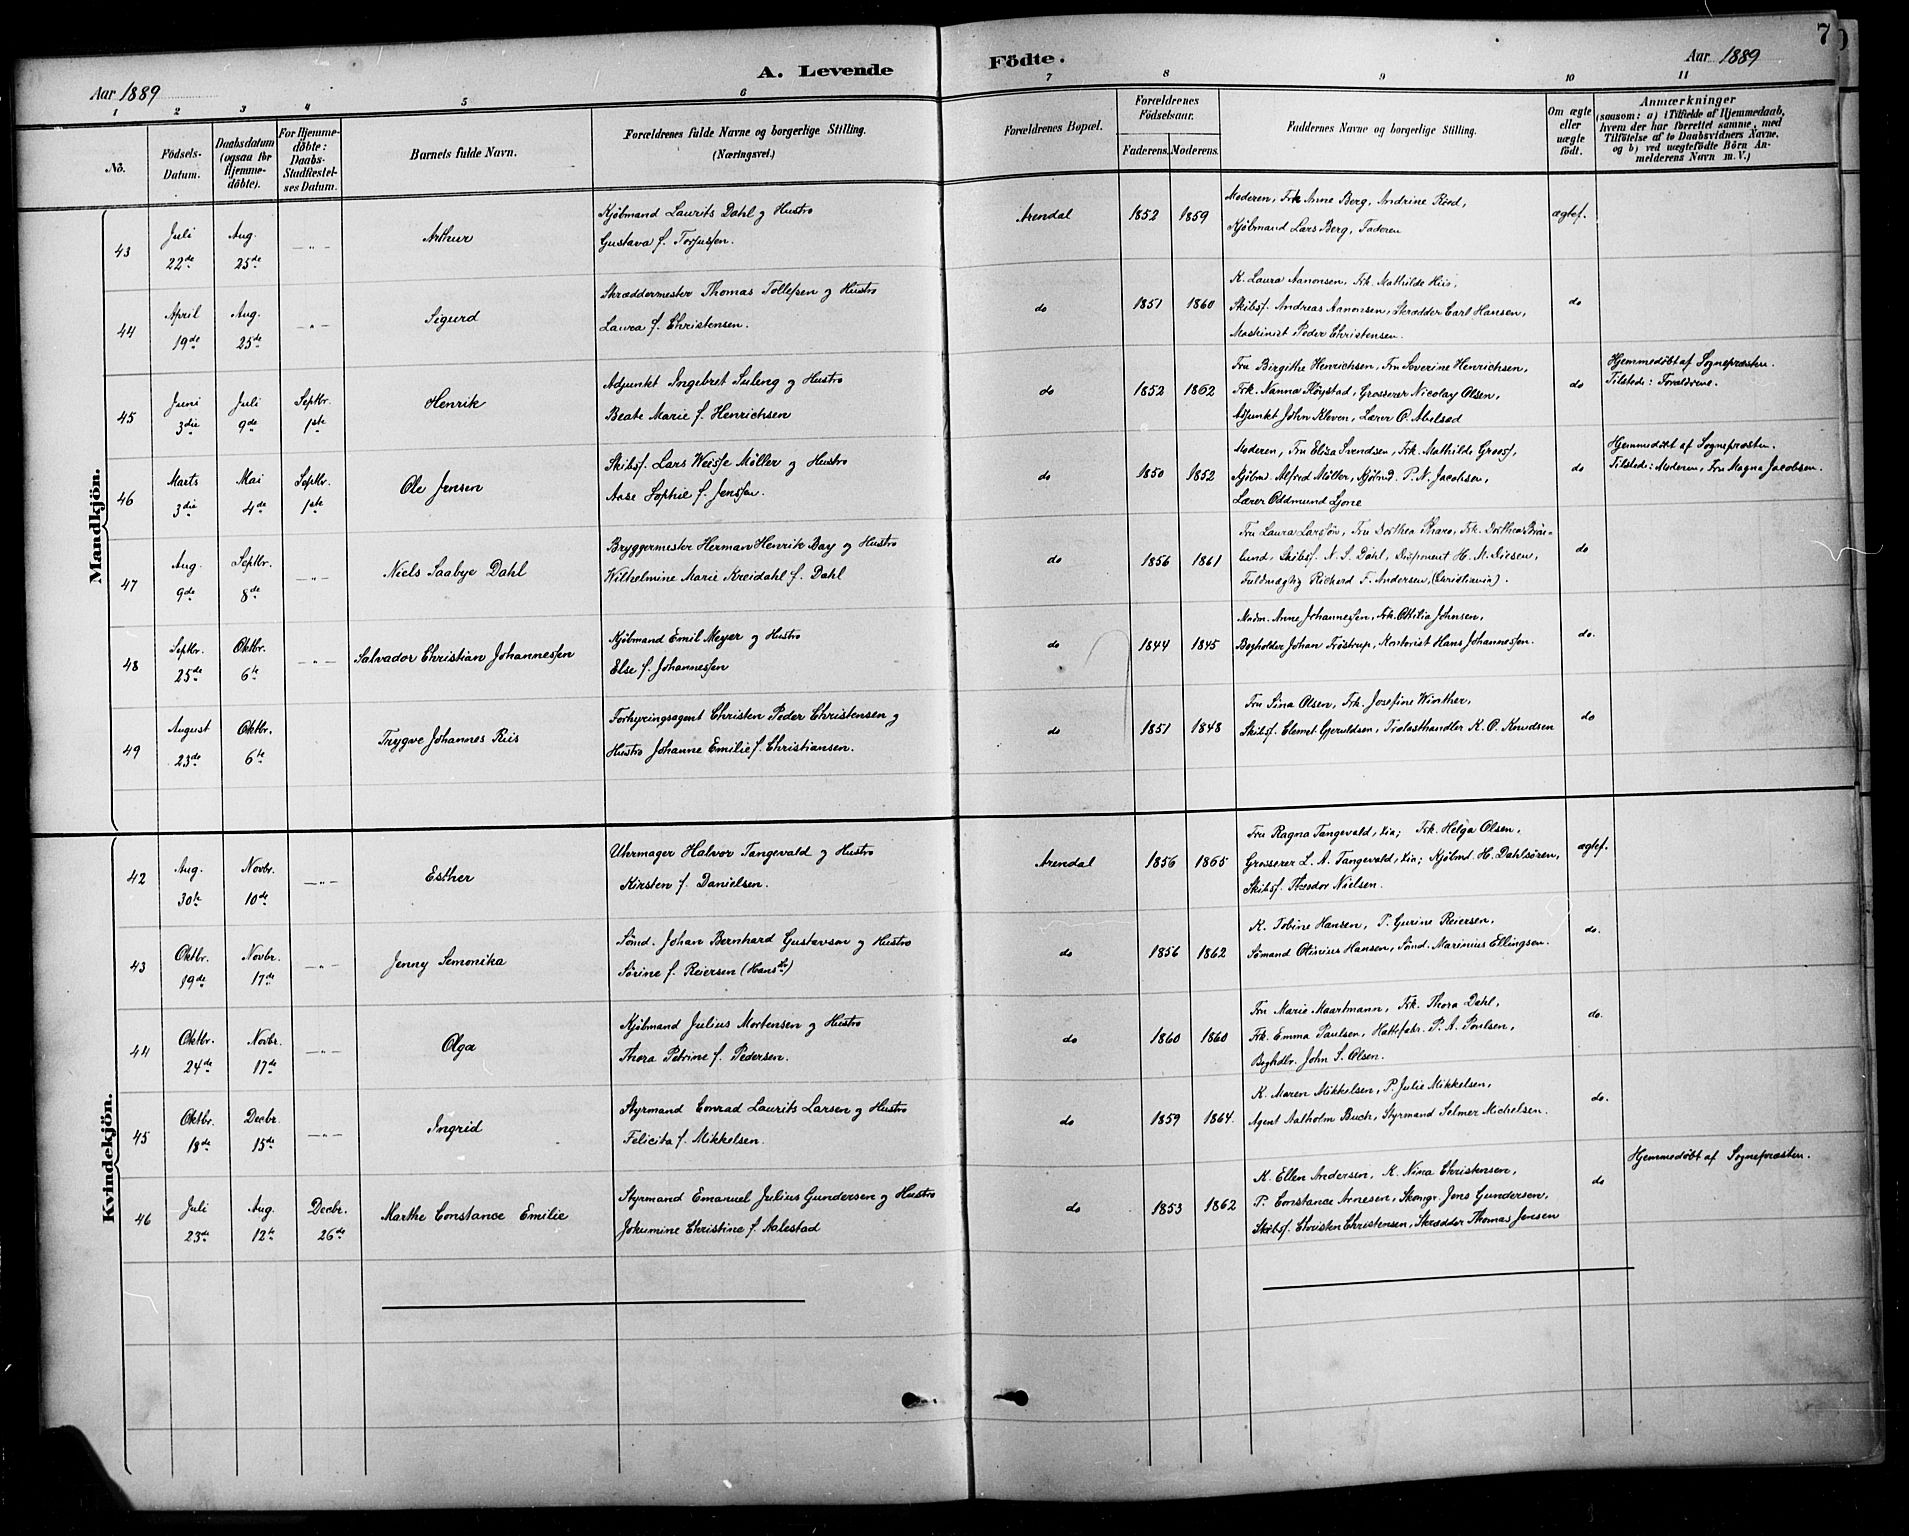 7
A. Levende Födte.
Aar 1889
Aar 1889
1 2 3 4 5 6 7 8 9 10 11
No.
Födsels-Datum.
Daabsdatum (ogsaa for Hjemmedöbte).
For Hjemmedöbte: Daabs-Stadfæstelses Datum.
Barnets fulde Navn.
Forældrenes fulde Navne og borgerlige Stilling.
(Næringsvei.)
Forældrenes Bopæl.
Forældrenes Födselsaar.
Faderens. Moderens.
Faddernes Navne og borgerlige Stilling.
Om ægte eller uægte födt.
Anmærkninger
(saasom: a) i Tilfælde af Hjemmedaab, hvem der har forrettet samme, med Tilföielse af to Daabsvidners Navne, og b) ved uægtefödte Börn Anmelderens Navn m. V.)
Mandkjön.
43 Juli 22de Aug. 25de —„— Arthur
Kjöbmand Laurits Dahl og Hustro
Gustava f. Torjussen.
Arendal 1852 1859
Moderen, Frk Anne Berg, Andrine Röed,
Kjöbmand Lars Berg, Faderen
ægtef.
44 April 19de Aug. 25de —„— Sigurd
Skræddermester Thomas Tollefsen og Hustro
Laura f. Christensen.
do 1851 1860
K. Laura Aanonsen, Frk. Mathilde Hiis,
Skibsf. Andreas Aanonsen, Skrædder Carl Hansen,
Maskinist Peder Christensen.
do
45 Juni 3die Juli 9de Septbr. 1ste Henrik
Adjunkt Ingebret Suleng og Hustro
Beate Marie f. Henrichsen
do 1852 1862
Fru Birgithe Henrichsen, Fru Severine Henrichsen,
Frk. Nanna Flöystad, Grosserer Nicolay Olsen,
Adjunkt John Kleven, Lærer O. Abelsad
do
Hjemmedöbt af Sognepræsten.
Tilstede: Forældrene.
46 Marts 3die Mai 4de Septbr. 1ste Ole Jensen
Skibsf. Lars Weisse Möller og Hustro
Aase Sophie f. Jenssen.
do 1850 1852
Moderen, Fru Elisa Svendsen, Frk. Mathilde Groos,
Kjöbm. Alfred Möller, Kjöbmd. P. N. Jacobsen,
Lærer Oddmund Ljone
do
Hjemmedöbt af Sognepræsten.
Tilstede: Moderen, Fru Magna Jacobsen.
47 Aug. 9de Septbr. 8de —„— Niels Saabye Dahl
Bryggermester Herman Henrik Bay og Hustro
Wilhelmine Marie Kreidahl f. Dahl
do 1856 1861
Fru Laura Larssön, Fru Dorthea Tharo, Frk. Dorthea
lund, Skibsf. N. S. Dahl, Disponent H. M. Niesen,
Fuldmægtig Richard F. Andersen, (Christiania).
do
48 Septbr. 25de Oktbr. 6te —„— Salvador Christian Johannessen
Kjöbmand Emil Meyer og Hustro
Else f. Johannessen
do 1844 1845
Madm. Anne Johannessen, Frk. Othilia Johnsen,
Bogholder Johan Tröstrup, Kontorist Hans Johannessen.
do.
49 August 23de Oktbr. 6te Trygve Johannes Riis
Forhyringsagent Christen Peder Christensen og
Hustro Johanne Emilie f. Christiansen.
do 1851 1848
Fru Sina Olsen, Frk. Josefine Winther,
Skibsf. Clemet Gjeruldsen, Trælasthandler K. O. Knudsen
do
Kvindekjön.
42 Aug. 30te Novbr. 10de —„— Esther
Uhrmager Halvor Tangevald og Hustro
Kirsten f. Danielsen.
Arendal 1856 1865
Fru Ragna Tangevald, Xia; Frk. Helga Olsen,
Grosserer L. A. Tangevald, Xia; Kjöbmd. H. Dahlsören,
Skibsf. Theodor Nielsen.
ægtef.
43 Oktbr. 19de Novbr. 17de —„— Jenny Semonika
Sömd. Johan Bernhard Gustavson og Hustro
Sörine f. Reiersen
do 1856 1862
K. Tobine Hansen, P. Gurine Reiersen,
Sömand Olinius Hansen, Sömd. Marinius Ellingsen.
do.
44 Oktbr. 24de Novbr. 17de —„— Olga
Kjöbmand Julius Mortensen og Hustro
Thora Petrine f. Pedersen.
do 1860 1860
Fru Marie Maartmann, Frk. Thora Dahl,
Frk. Emma Paulsen, Hattefabr. P. A. Poulsen,
Boghdlr. John S. Olsen.
do.
45 Oktbr. 18de Decbr. 15de —„— Ingrid
Styrmand Conrad Laurits Larsen og Hustro
Felicita f. Mikkelsen.
do 1859 1864.
K. Maren Mikkelsen, P. Julie Mikkelsen,
Agent Aalholm Buch, Styrmand Selmer Michelsen.
do.
46 Juli 23de Aug. 12te Decbr. 26de Marthe Constance Emilie
Styrmand Emanuel Julius Gundersen og Hustro
Jokumine Christine f. Aalestad
do 1853 1862
K. Ellen Andersen, K. Nina Christensen,
P. Constance Arnesen, Skomgr. Jens Gundersen,
Skibsf. Christen Christensen, Skrædder Thomas Jensen
do
Hjemmedöbt af Sognepræsten.